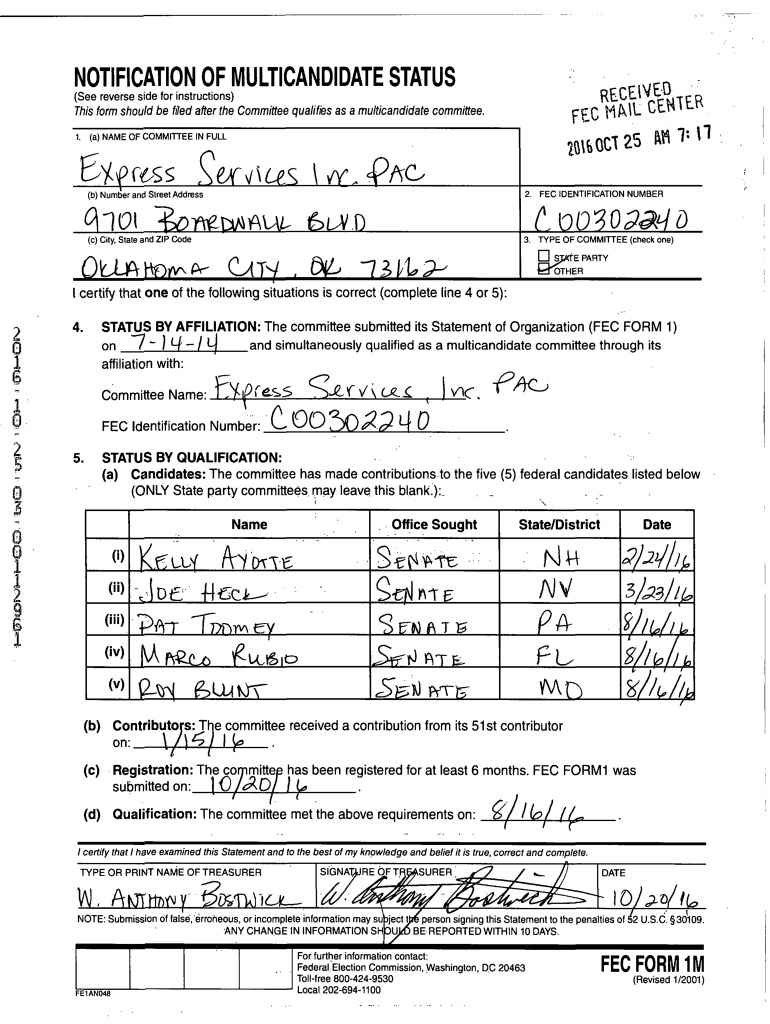 NOTIFICATION OF MULTICANDIDATE STATUS
(See reverse side for instructions)
This form should be filed after the Committee qualifies as a multicandidate committee.
RECEIVED
FEC MAIL CENTER
2016 OCT 25 AM 7:17
1. (a) NAME OF COMMITTEE IN FULL
Express Services Inc. PAC
(b) Number and Street Address
9701 BOARDWALK BLVD
2. FEC IDENTIFICATION NUMBER
C00302240
(c) City, State and ZIP Code
OKLAHOMA CITY, OK 73162
3. TYPE OF COMMITTEE (check one)
STATE PARTY
OTHER
I certify that one of the following situations is correct (complete line 4 or 5):
4. STATUS BY AFFILIATION: The committee submitted its Statement of Organization (FEC FORM 1)
on 7-14-14 and simultaneously qualified as a multicandidate committee through its
affiliation with:
Committee Name: Express Services, Inc. PAC
FEC Identification Number: C00302240.
5. STATUS BY QUALIFICATION:
(a) Candidates: The committee has made contributions to the five (5) federal candidates listed below
(ONLY State party committees may leave this blank.):
Name Office Sought State/District Date
(i) KELLY AYOTTE SENATE NH 2/24/16
(ii) JOE HECK SENATE NV 3/23/16
(iii) PAT TOOMEY SENATE PA 8/16/16
(iv) MARCO RUBIO SENATE FL 8/16/16
(v) ROY BLUNT SENATE MO 8/16/16
(b) Contributors: The committee received a contribution from its 51st contributor
on: 1/15/16.
(c) Registration: The committee has been registered for at least 6 months. FEC FORM1 was
submitted on: 10/20/16.
(d) Qualification: The committee met the above requirements on: 8/16/16.
I certify that I have examined this Statement and to the best of my knowledge and belief it is true, correct and complete.
TYPE OR PRINT NAME OF TREASURER
W. ANTHONY BOSTWICK
SIGNATURE OF TREASURER
W. Anthony Bostwick
DATE
10/20/16
NOTE: Submission of false, erroneous, or incomplete information may subject the person signing this Statement to the penalties of 52 U.S.C. §30109.
ANY CHANGE IN INFORMATION SHOULD BE REPORTED WITHIN 10 DAYS.
For further information contact:
Federal Election Commission, Washington, DC 20463
Toll-free 800-424-9530
Local 202-694-1100
FEC FORM 1M
(Revised 1/2001)
FE1AN048
2016-10-25-03-00112961